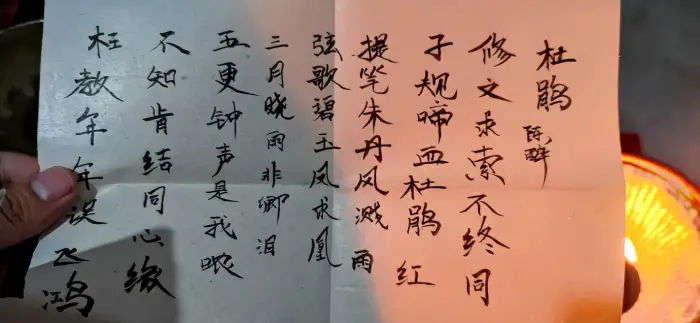 杜鹃
陈醉
修文求索不终同
子规啼血杜鹃红
提笔朱丹凤溅雨
弦歌碧玉凤求凰
三月晓雨非卿泪
五更钟声是我哝
不知肯结同心缘
枉教年年误飞鸿